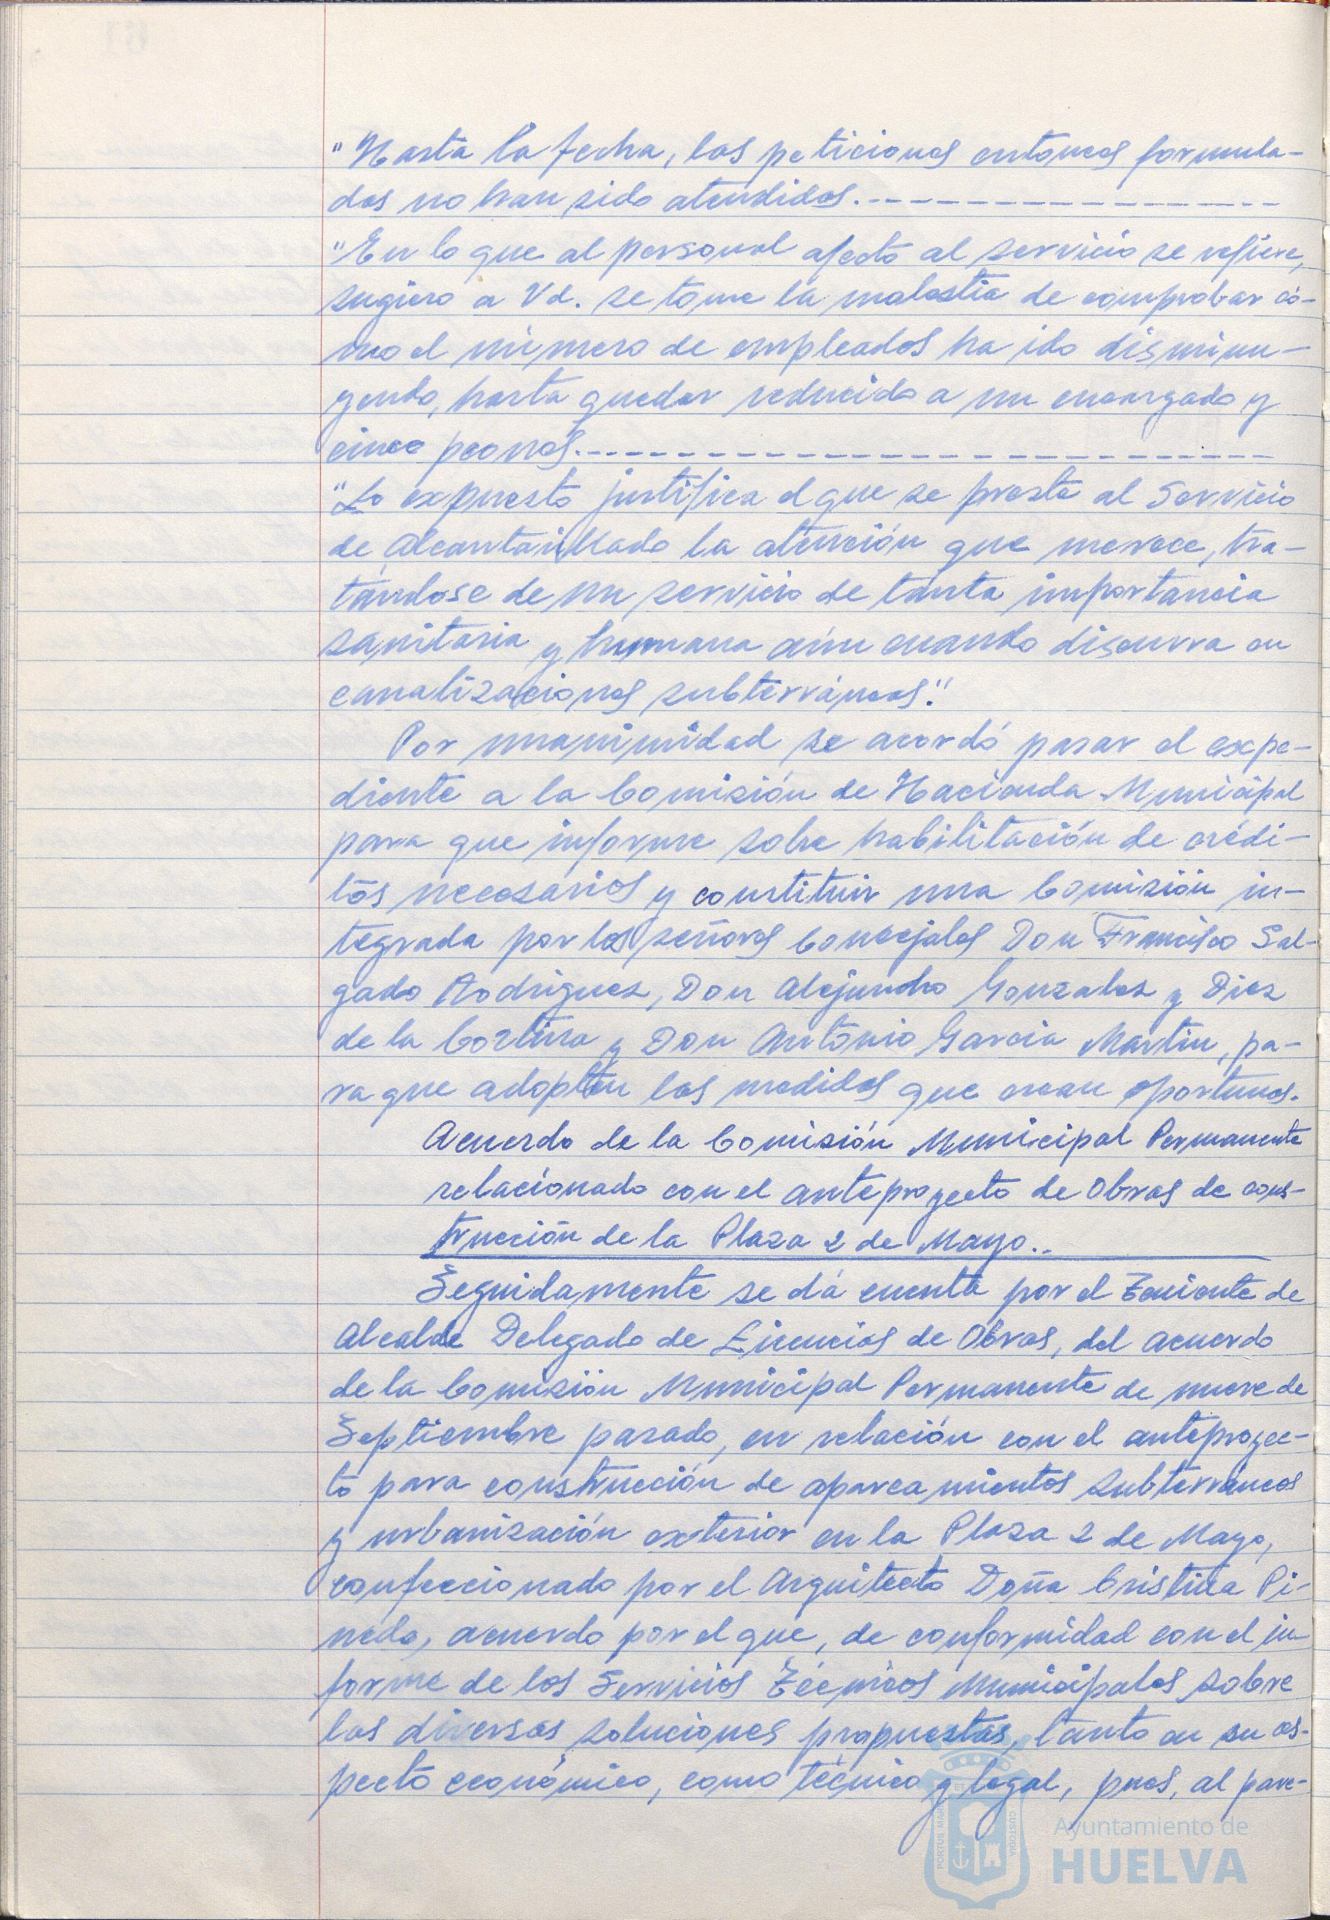 "Hasta la fecha, las peticiones entonces formula-
das no han sido atendidas.-----------------
"En lo que al personal afecto al servicio se refiere,
sugiero a Vd. se tome la molestia de comprobar có-
mo el número de empleados ha ido disminu-
yendo, hasta quedar reducido a un encargado y
cinco peones.---------------------------
"Lo expuesto justifica el que se preste al Servicio
de Alcantarillado la atención que merece, tra-
tándose de un servicio de tanta importancia
sanitaria y humana aún cuando discurra en
canalizaciones subterráneas."
Por unanimidad se acordó pasar el expe-
diente a la Comisión de Hacienda Municipal
para que informe sobre habilitación de crédi-
tos necesarios y constituir una Comisión in-
tegrada por los señores Concejales Don Francisco Sal-
gado Rodriguez, Don Alejandro Gonzalez y Diez
de la Cortina y Don Antonio Garcia Martin, pa-
ra que adopten las medidas que crean oportunas.
Acuerdo de la Comisión Municipal Permanente
relacionado con el anteproyecto de Obras de cons-
trucción de la Plaza 2 de Mayo..
Seguidamente se dá cuenta por el Teniente de
Alcalde Delegado de Licencias de Obras, del acuerdo
de la Comisión Municipal Permanente de nueve de
Septiembre pasado, en relación con el anteproyec-
to para construcción de aparcamientos subterraneos
y urbanización exterior en la Plaza 2 de Mayo,
confeccionado por el Arquitecto Doña Cristina Pi-
neda, acuerdo por el que, de conformidad con el in
forme de los Servicios Técnicos Municipales sobre
las diversas soluciones propuestas, tanto en su as-
pecto económico, como técnico y legal, pues, al pare-
PORTUS MARIS ET TERRAE CUSTODIA
Ayuntamiento de
HUELVA